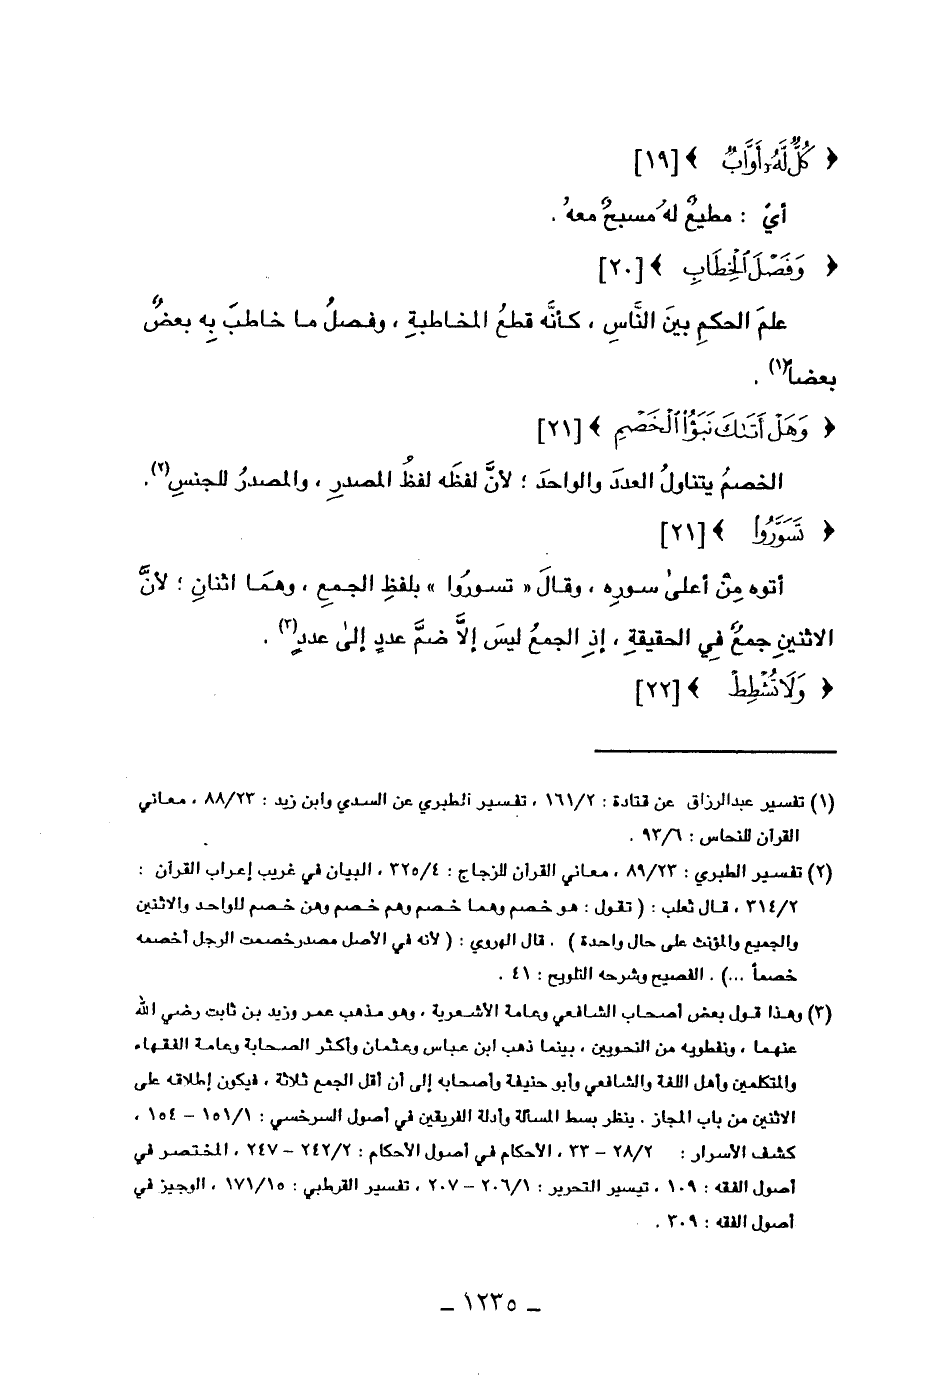 ﴿ كُلٌّ لَّهُۥٓ أَوَّابٌ ﴾ [١٩]
أيْ : مطيعٌ لهُ مسبحٌ معهُ .
﴿ وَفَصْلَ ٱلْخِطَابِ ﴾ [٢٠]
علمَ الحكمِ بينَ النَّاسِ ، كأنَّه قطعُ المخاطبةِ ، وفصلُ ما خاطبَ بِه بعضٌ
بعضاً(١) .
﴿ وَهَلْ أَتَىٰكَ نَبَؤُا۟ ٱلْخَصْمِ ﴾ [٢١]
الخصمُ يتناولُ العددَ والواحدَ ؛ لأنَّ لفظَه لفظُ المصدرِ ، والمصدرُ للجنسِ(٢).
﴿ تَسَوَّرُوا۟ ﴾ [٢١]
أتوه مِنْ أعلىٰ سورِه ، وقالَ « تسورُوا » بلفظِ الجمعِ ، وهمَا اثنانِ ؛ لأنَّ
الاثنينِ جمعٌ فِي الحقيقةِ ، إذِ الجمعُ ليسَ إلاَّ ضمَّ عددٍ إلىٰ عددٍ(٣) .
﴿ وَلَا تُشْطِطْ ﴾ [٢٢]
(١) تفسير عبدالرزاق عن قتادة : ١٦١/٢ ، تفسير الطبري عن السدي وابن زيد : ٨٨/٢٣ ، معاني
القرآن للنحاس : ٩٣/٦ .
(٢) تفسير الطبري : ٨٩/٢٣ ، معاني القرآن للزجاج : ٣٢٥/٤ ، البيان في غريب إعراب القرآن :
٣١٤/٢ ، قال ثعلب : ( تقول : هو خصم وهما خصم وهم خصم وهن خصم للواحد والاثنين
والجميع والمؤنث على حال واحدة ) . قال الهروي : ( لأنه في الأصل مصدرخصمت الرجل أخصمه
خصماً ...) . الفصيح وشرحه التلويح : ٤١ .
(٣) وهذا قول بعض أصحاب الشافعي وعامة الأشعرية ، وهو مذهب عمر وزيد بن ثابت رضي الله
عنهما ، ونفطويه من النحويين ، بينما ذهب ابن عباس وعثمان وأكثر الصحابة وعامة الفقهاء
والمتكلمين وأهل اللغة والشافعي وأبو حنيفة وأصحابه إلى أن أقل الجمع ثلاثة ، فيكون إطلاقه على
الاثنين من باب المجاز . ينظر بسط المسألة وأدلة الفريقين في أصول السرخسي : ١٥١/١ - ١٥٤ ،
كشف الأسرار : ٢٨/٢ - ٣٣ ، الأحكام في أصول الأحكام : ٢٤٢/٢ - ٢٤٧ ، المختصر في
أصول الفقه : ١٠٩ ، تيسير التحرير : ٢٠٦/١ - ٢٠٧ ، تفسير القرطبي : ١٧١/١٥ ، الوجيز في
أصول الفقه : ٣٠٩ .
- ١٢٣٥ -